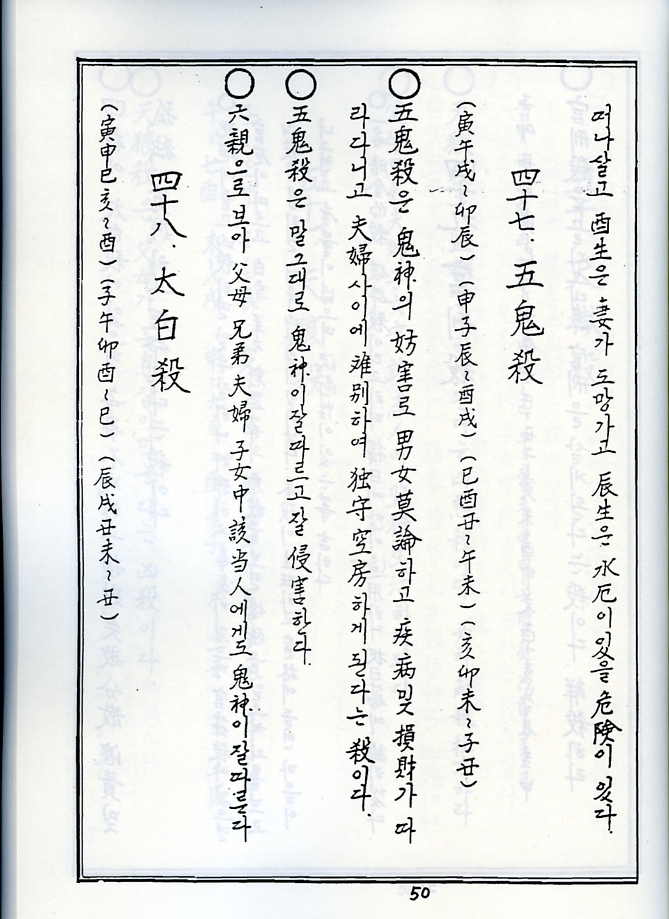 떠나살고 酉生은 妻가 도망가고 辰生은 水厄이 있을 危險이 있다.
四十七. 五鬼殺
(寅午戌~卯辰) (申子辰~酉戌) (巳酉丑~午未) (亥卯未~子丑)
○ 五鬼殺은 鬼神의 妨害로 男女莫論하고 疾病및 損財가 따
라다니고 夫婦사이에 难別하여 独守空房하게 된다는 殺이다.
○ 五鬼殺은 말그대로 鬼神이잘따르고 잘 侵害한다.
○ 六親으로보아 父母 兄弟 夫婦 子女中 該当人에게도 鬼神이잘따른다
四十八. 太白殺
(寅申巳亥~酉) (子午卯酉~巳) (辰戌丑未~丑)
50